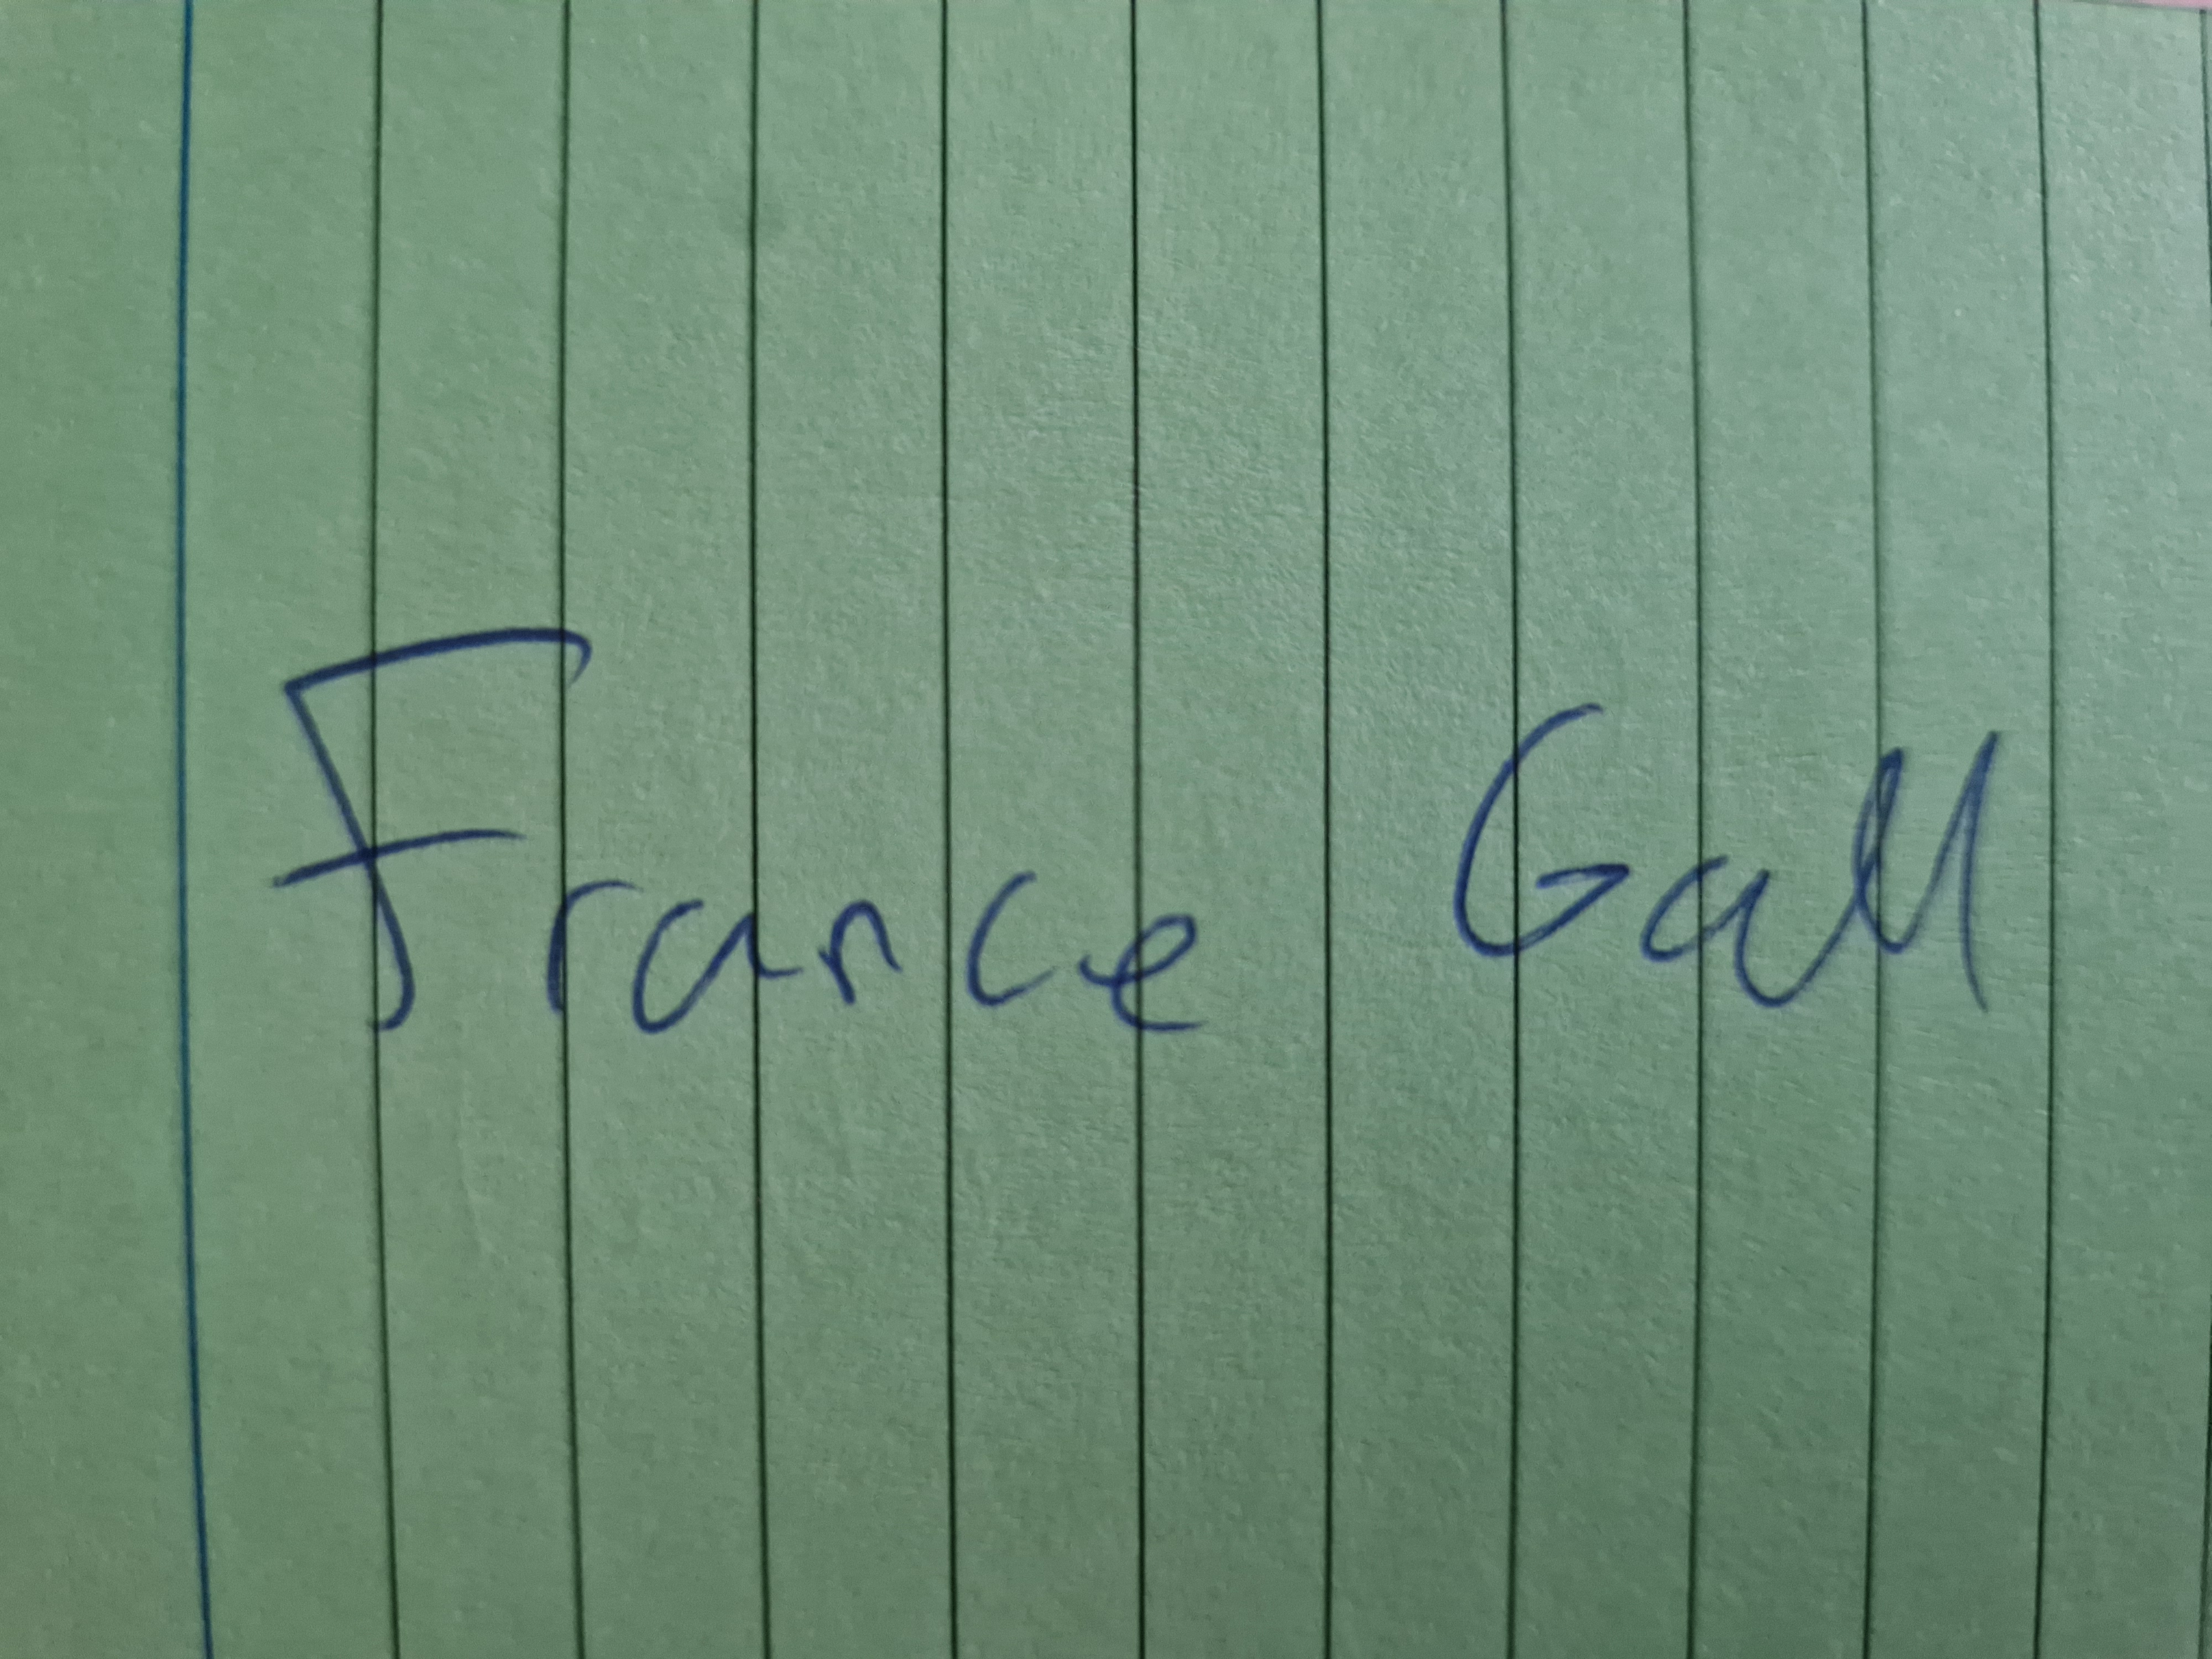 France Gall